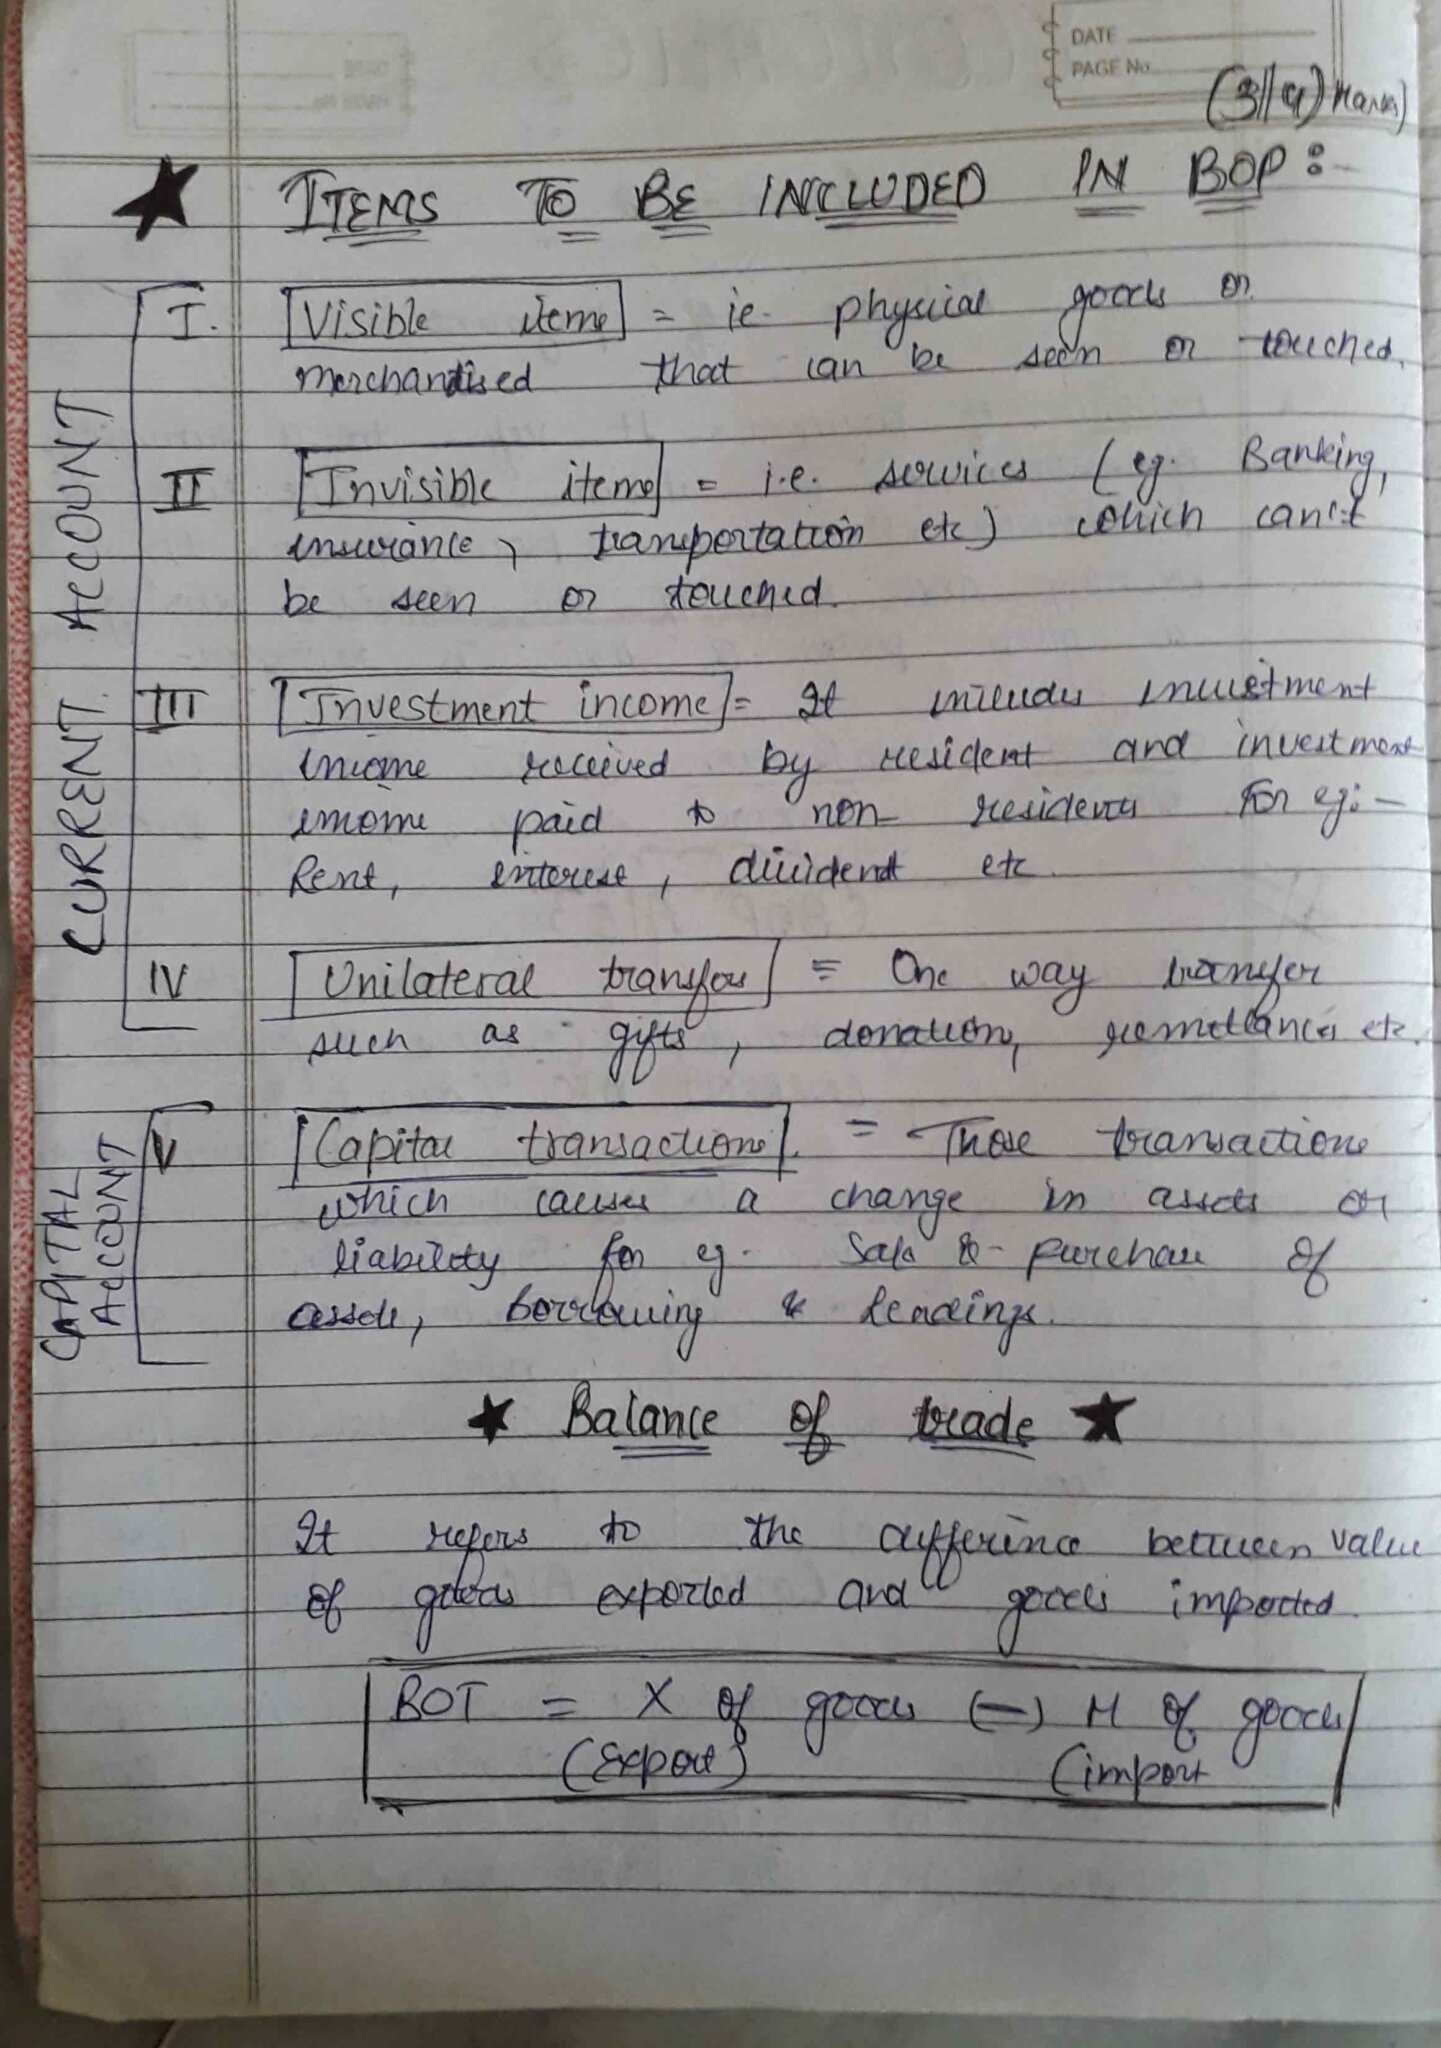 DATE
PAGE No.
(3//4) Marks)
★ ITEMS TO BE INCLUDED IN BOP :-
CURRENT ACCOUNT
I. Visible items = ie. physical goods or
merchandised that can be seen or touched.
II Invisible items = i.e. services (eg. Banking,
insurance, transportation etc) which can't
be seen or touched.
III Investment income = It includes investment
income received by resident and investment
income paid to non residents for eg:-
Rent, interest, dividend etc.
IV Unilateral transfers = One way transfer
such as gifts, donation, remittances etc.
CAPITAL ACCOUNT
V Capital transactions. = Those transactions
which causes a change in assets or
liability for eg. Sale & purchase of
assets, borrowing & lendings.
★ Balance of trade ★
It refers to the difference between value
of goods exported and goods imported.
BOT = X of goods (-) M of goods
(Export) (import